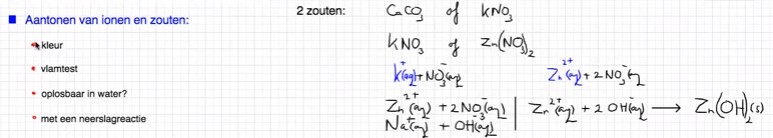 Aantonen van ionen en zouten:
kleur
vlamtest
oplosbaar in water?
met een neerslagreactie
2 zouten:
CaCO₃ of KNO₃
KNO₃ of Zn(NO₃)₂
K⁺(aq) + NO₃⁻(aq)
Zn²⁺(aq) + 2 NO₃⁻(aq
Zn²⁺(aq) + 2 NO₃⁻(aq)
Na⁺(aq) + OH⁻(aq)
Zn²⁺(aq) + 2 OH⁻(aq) ⟶ Zn(OH)₂(s)